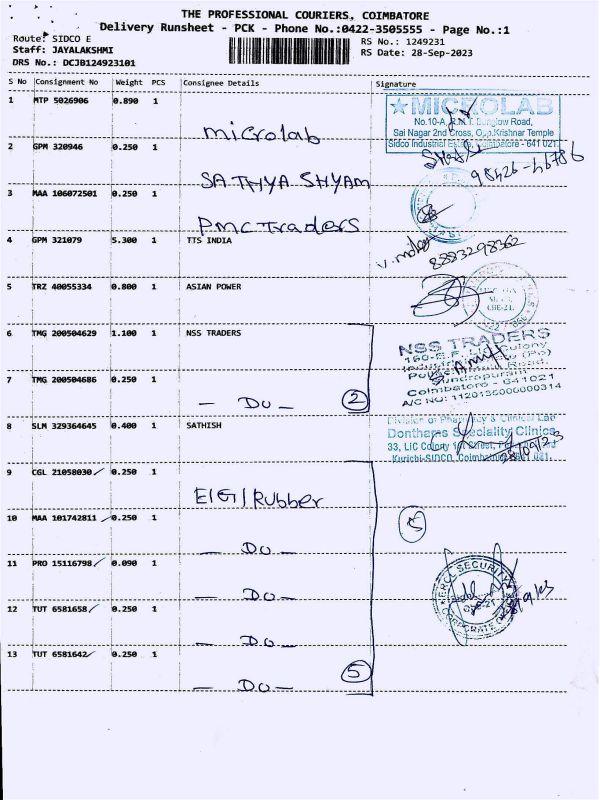 THE PROFESSIONAL COURIERS, COIMBATORE
Delivery Runsheet - PCK - Phone No.:0422-3505555 - Page No.:1
Route: SIDCO E
RS No.: 1249231
Staff: JAYALAKSHMI
RS Date: 28-Sep-2023
DRS No.: DCJB124923101
S No Consignment No Weight PCS Consignee Details Signature
1 MTP 5026906 0.890 1 microlab
★MICROLAB
No.10-A, R.N.T. Bunglow Road,
Sai Nagar 2nd Cross, Opp.Krishnar Temple
Sidco Industrial Estate, Coimbatore - 641 021.
2 GPM 320946 0.250 1 SATHYA SHYAM
98426-46786
3 MAA 106072501 0.250 1 PMC Traders
4 GPM 321079 5.300 1 TTS INDIA
8883298362
5 TRZ 40055334 0.800 1 ASIAN POWER
6 TMG 200504629 1.100 1 NSS TRADERS
NSS TRADERS
Coimbatore - 641021
A/C NO: 1120135000000314
7 TMG 200504686 0.250 1 — DO — 2
8 SLM 329364645 0.400 1 SATHISH
Division of Pharmacy & Clinical Lab
Donthams Speciality Clinics
33, LIC Colony 1st Street,
Kurichi-SIDCO, Coimbatore 641 021.
9 CGL 21058030 0.250 1 E/G/Rubber
10 MAA 101742811 0.250 1 — DO — 5
11 PRO 15116798 0.090 1 — DO —
12 TUT 6581658 0.250 1 — DO —
13 TUT 6581642 0.250 1 — DO — 5